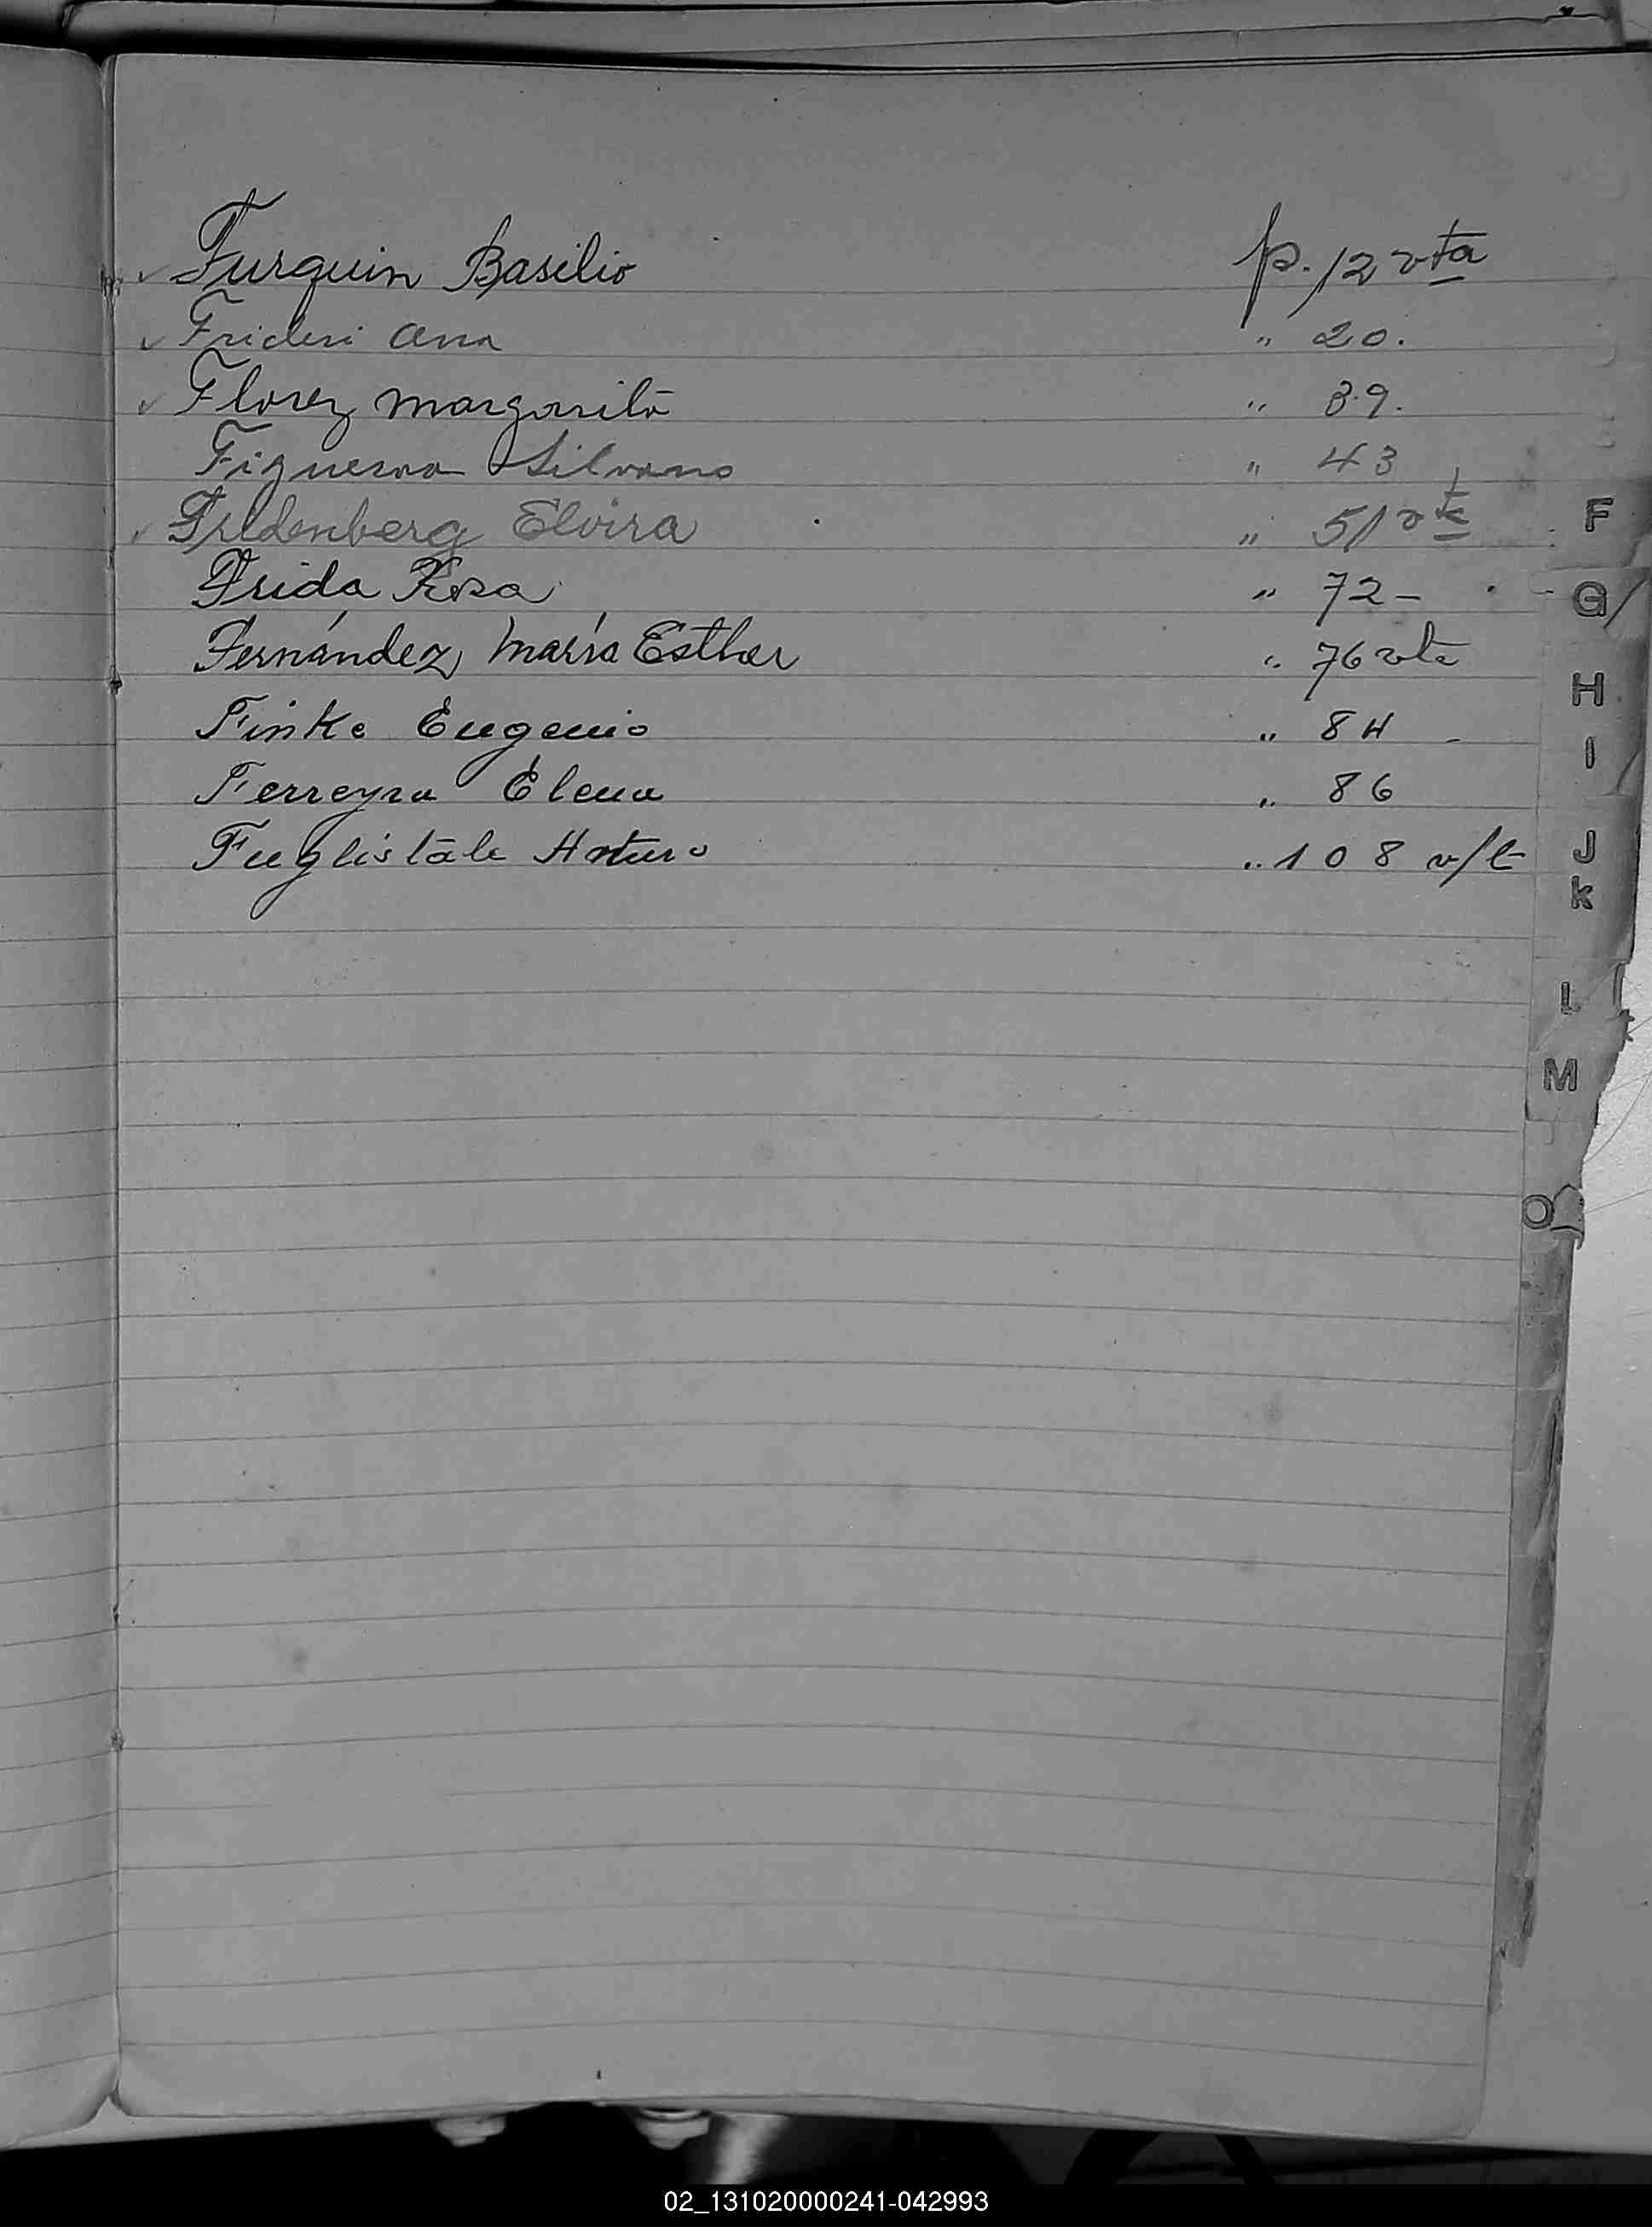 ✓ Furquin Basilio p. 12 vta
✓ Frideri Ana " 20.
✓ Florez Margarita " 39.
Figueroa Silvano " 43
✓ Fridenberg Elvira " 51 vta
Frida Rosa " 72 -
Fernández María Esther " 76 vta
Finke Eugenio " 84 -
Ferreyra Elena " 86
Fuglistale Arturo " 108 v/t
F
G
H
I
J
K
L
M
O
02_131020000241-042993